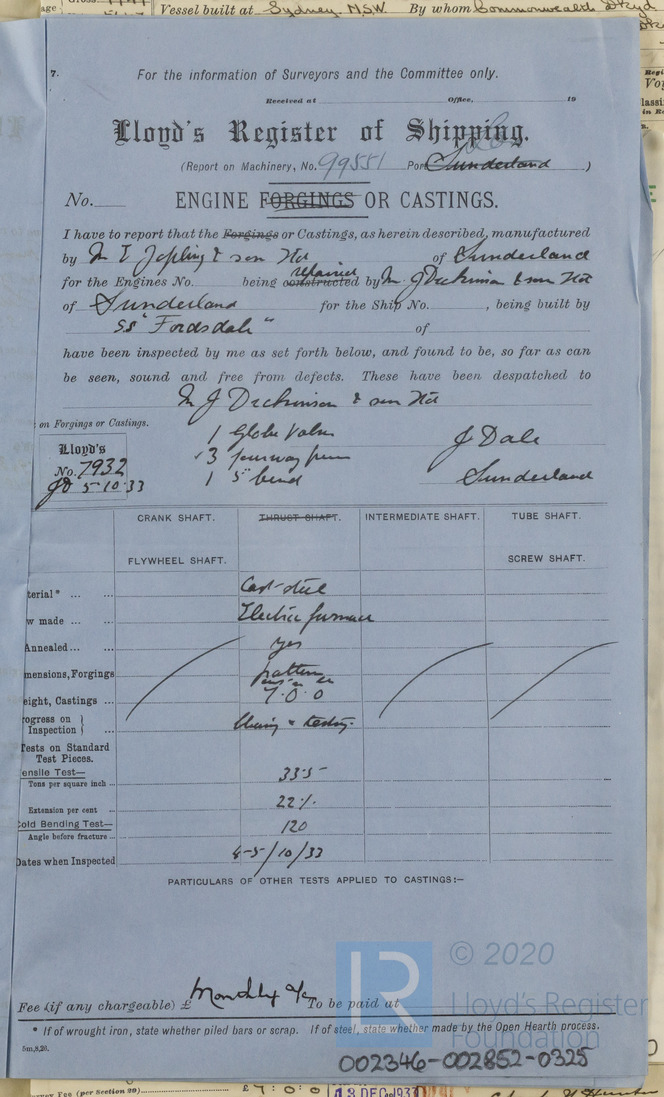 Vessel built at Sydney. N.S.W. By whom Commonwealth Dkyd
7.
For the information of Surveyors and the Committee only.
Received at Office, 19
Lloyd's Register of Shipping.
(Report on Machinery, No. 99551 Port Sunderland )
No.
ENGINE FORGINGS OR CASTINGS.
I have to report that the Forgings or Castings, as herein described, manufactured
by M E Jopling & son Ltd of Sunderland
repaired
for the Engines No. being constructed by M J Dickinson & son Ltd
of Sunderland for the Ship No. , being built by
S.S "Fordsdale" of
have been inspected by me as set forth below, and found to be, so far as can
be seen, sound and free from defects. These have been despatched to
M J Dickinson & son Ltd
on Forgings or Castings.
Lloyd's
No. 7932
JD 5-10-33
1 Globe Valve
3 fourway
1 5" bend
J Dale
Sunderland
CRANK SHAFT. THRUST SHAFT. INTERMEDIATE SHAFT. TUBE SHAFT.
FLYWHEEL SHAFT. SCREW SHAFT.
terial * ... ... Cast-steel
w made ... ... Electric furnace
Annealed ... ... yes
mensions, Forgings pattern
eight, Castings ... 7.0.0
rogress on
Inspection ... & testing.
Tests on Standard
Test Pieces.
ensile Test—
Tons per square inch ... 33.5
Extension per cent ... 22%
Cold Bending Test—
Angle before fracture ... 120
Dates when Inspected 4-5/10/33
PARTICULARS OF OTHER TESTS APPLIED TO CASTINGS:—
© 2020
Lloyd's Register
Foundation
Fee (if any chargeable) £ Monthly a/c To be paid at
* If of wrought iron, state whether piled bars or scrap. If of steel, state whether made by the Open Hearth process.
5m,8,26.
002346-002852-0325
vey Fee (per Section 29) £ 7 : 0 : 0 13 DEC 1933